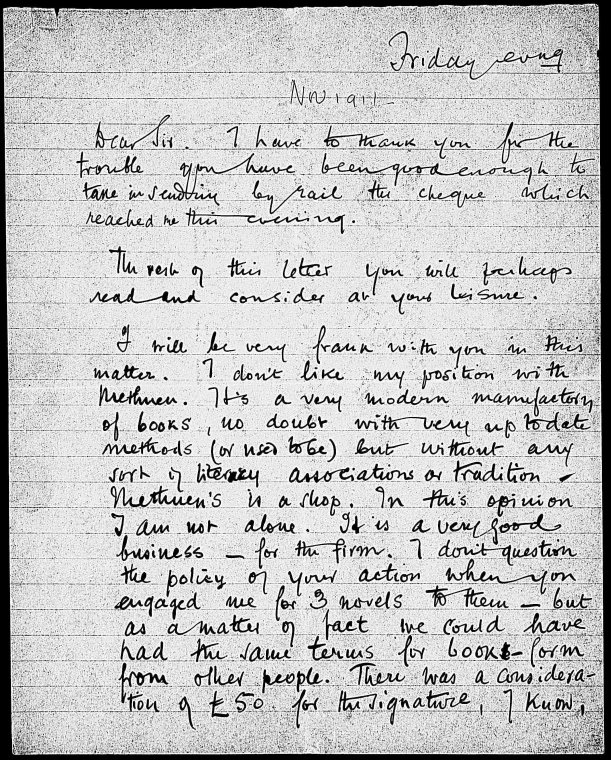 Friday evng
Nov 1911 -
Dear Sir. I have to thank you for the
trouble you have been good enough to
take in sending by rail the cheque which
reached me this evening.
The rest of this letter you will perhaps
read and consider at your leisure.
I will be very frank with you in this
matter. I don't like my position with
Methuen. It's a very modern manufactory
of books, no doubt with very up to date
methods (or used to be) but without any
sort of literary associations or tradition -
Methuen's is a shop. In this opinion
I am not alone. It is a very good
business - for the firm. I don't question
the policy of your action when you
engaged me for 3 novels to them - but
as a matter of fact we could have
had the same terms for book-form
from other people. There was a considera-
tion of £50. for the signature, I know,